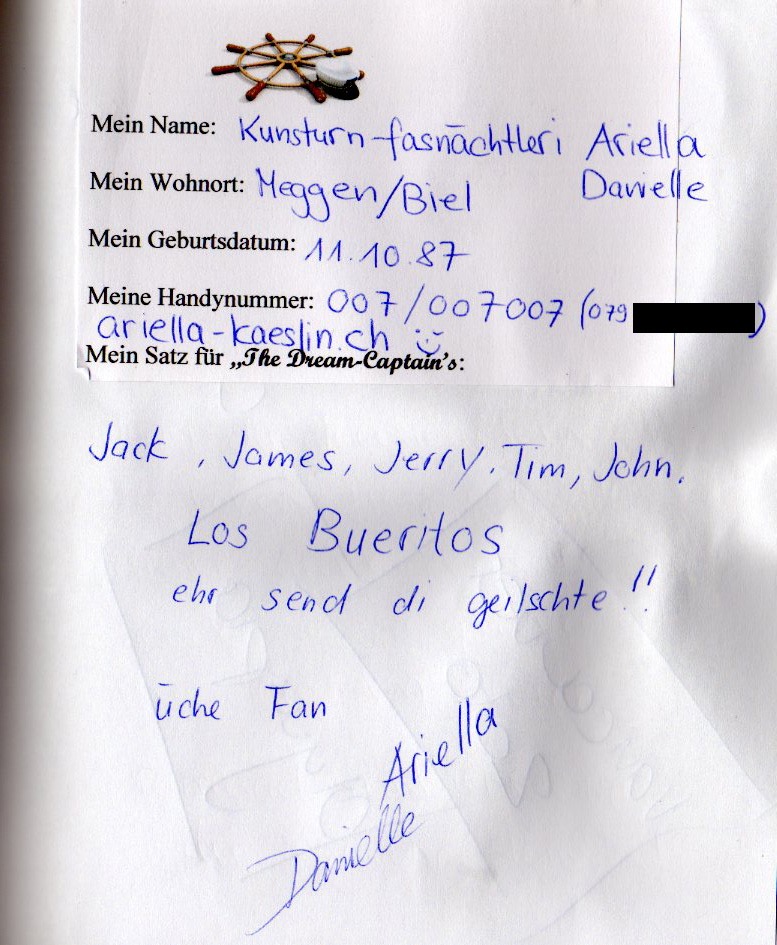 Mein Name: Kunsturn-fasnächtleri Ariella
Mein Wohnort: Meggen/Biel Danielle
Mein Geburtsdatum: 11.10.87
Meine Handynummer: 007/007007 (079 )
ariella-kaeslin.ch
Mein Satz für „The Dream-Captain's:
Jack, James, Jerry. Tim, John.
Los Bueritos
ehr send di geilschte!!
üche Fan
Ariella
Danielle